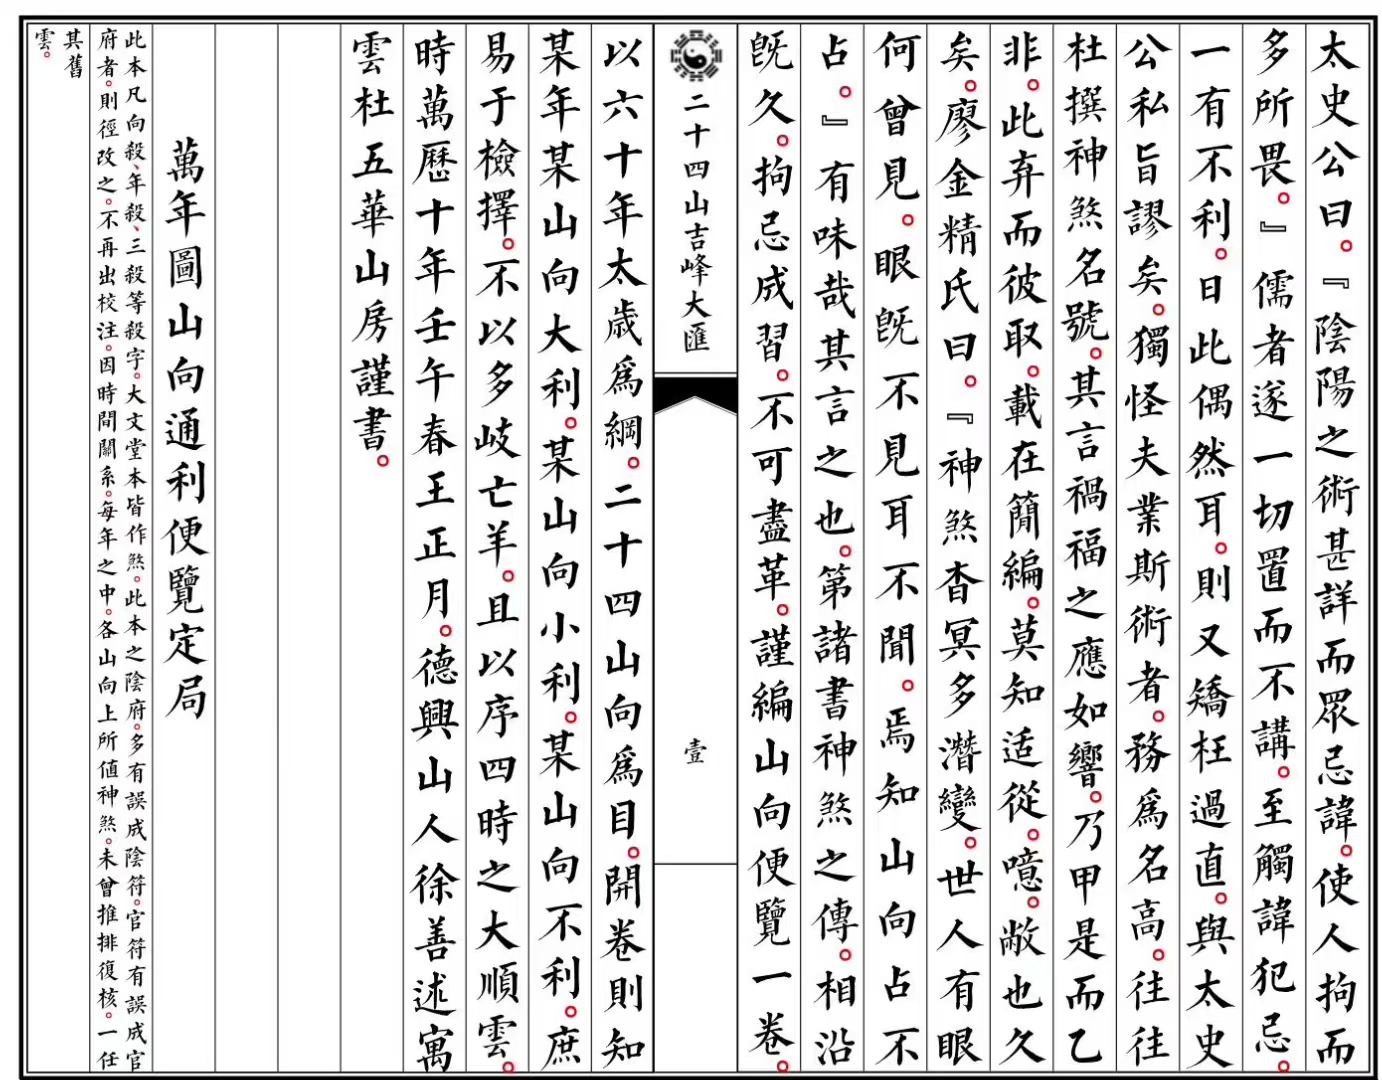 太史公曰。『陰陽之術甚詳而眾忌諱。使人拘而
多所畏。』儒者遂一切置而不講。至觸諱犯忌。
一有不利。日此偶然耳。則又矯枉過直。與太史
公私旨謬矣。獨怪夫業斯術者。務爲名高。往往
杜撰神煞名號。其言禍福之應如響。乃甲是而乙
非。此弃而彼取。載在簡編。莫知适從。噫。敝也久
矣。廖金精氏曰。『神煞杳冥多潛變。世人有眼
何曾見。眼旣不見耳不聞。焉知山向占不
占。』有味哉其言之也。第諸書神煞之傳。相沿
旣久。拘忌成習。不可盡革。謹編山向便覽一卷。
二十四山吉峰大匯
壹
以六十年太歲爲綱。二十四山向爲目。開卷則知
某年某山向大利。某山向小利。某山向不利。庶
易于檢擇。不以多岐亡羊。且以序四時之大順雲。
時萬歷十年壬午春王正月。德興山人徐善述寓
雲杜五華山房謹書。
萬年圖山向通利便覽定局
此本凡向殺、年殺、三殺等殺字。大文堂本皆作煞。此本之陰府。多有誤成陰符。官符有誤成官
府者。則徑改之。不再出校注。因時間關系。每年之中。各山向上所值神煞。未曾推排復核。一任
其舊
雲。